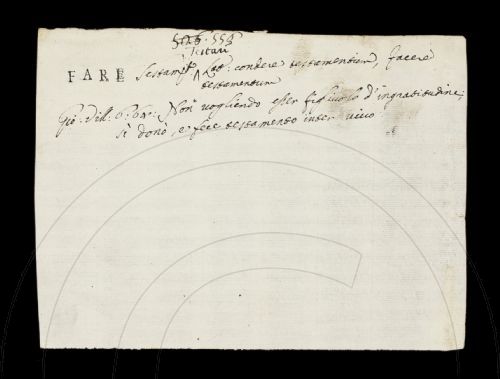 554
Testari
FARE Testamto. Lat: condere testamentum, facere
testamentum
Gio: Vill: 6: 64: Non vogliendo esser figliuolo d'ingratitudine;
si donò, e fece testamento inter vivo